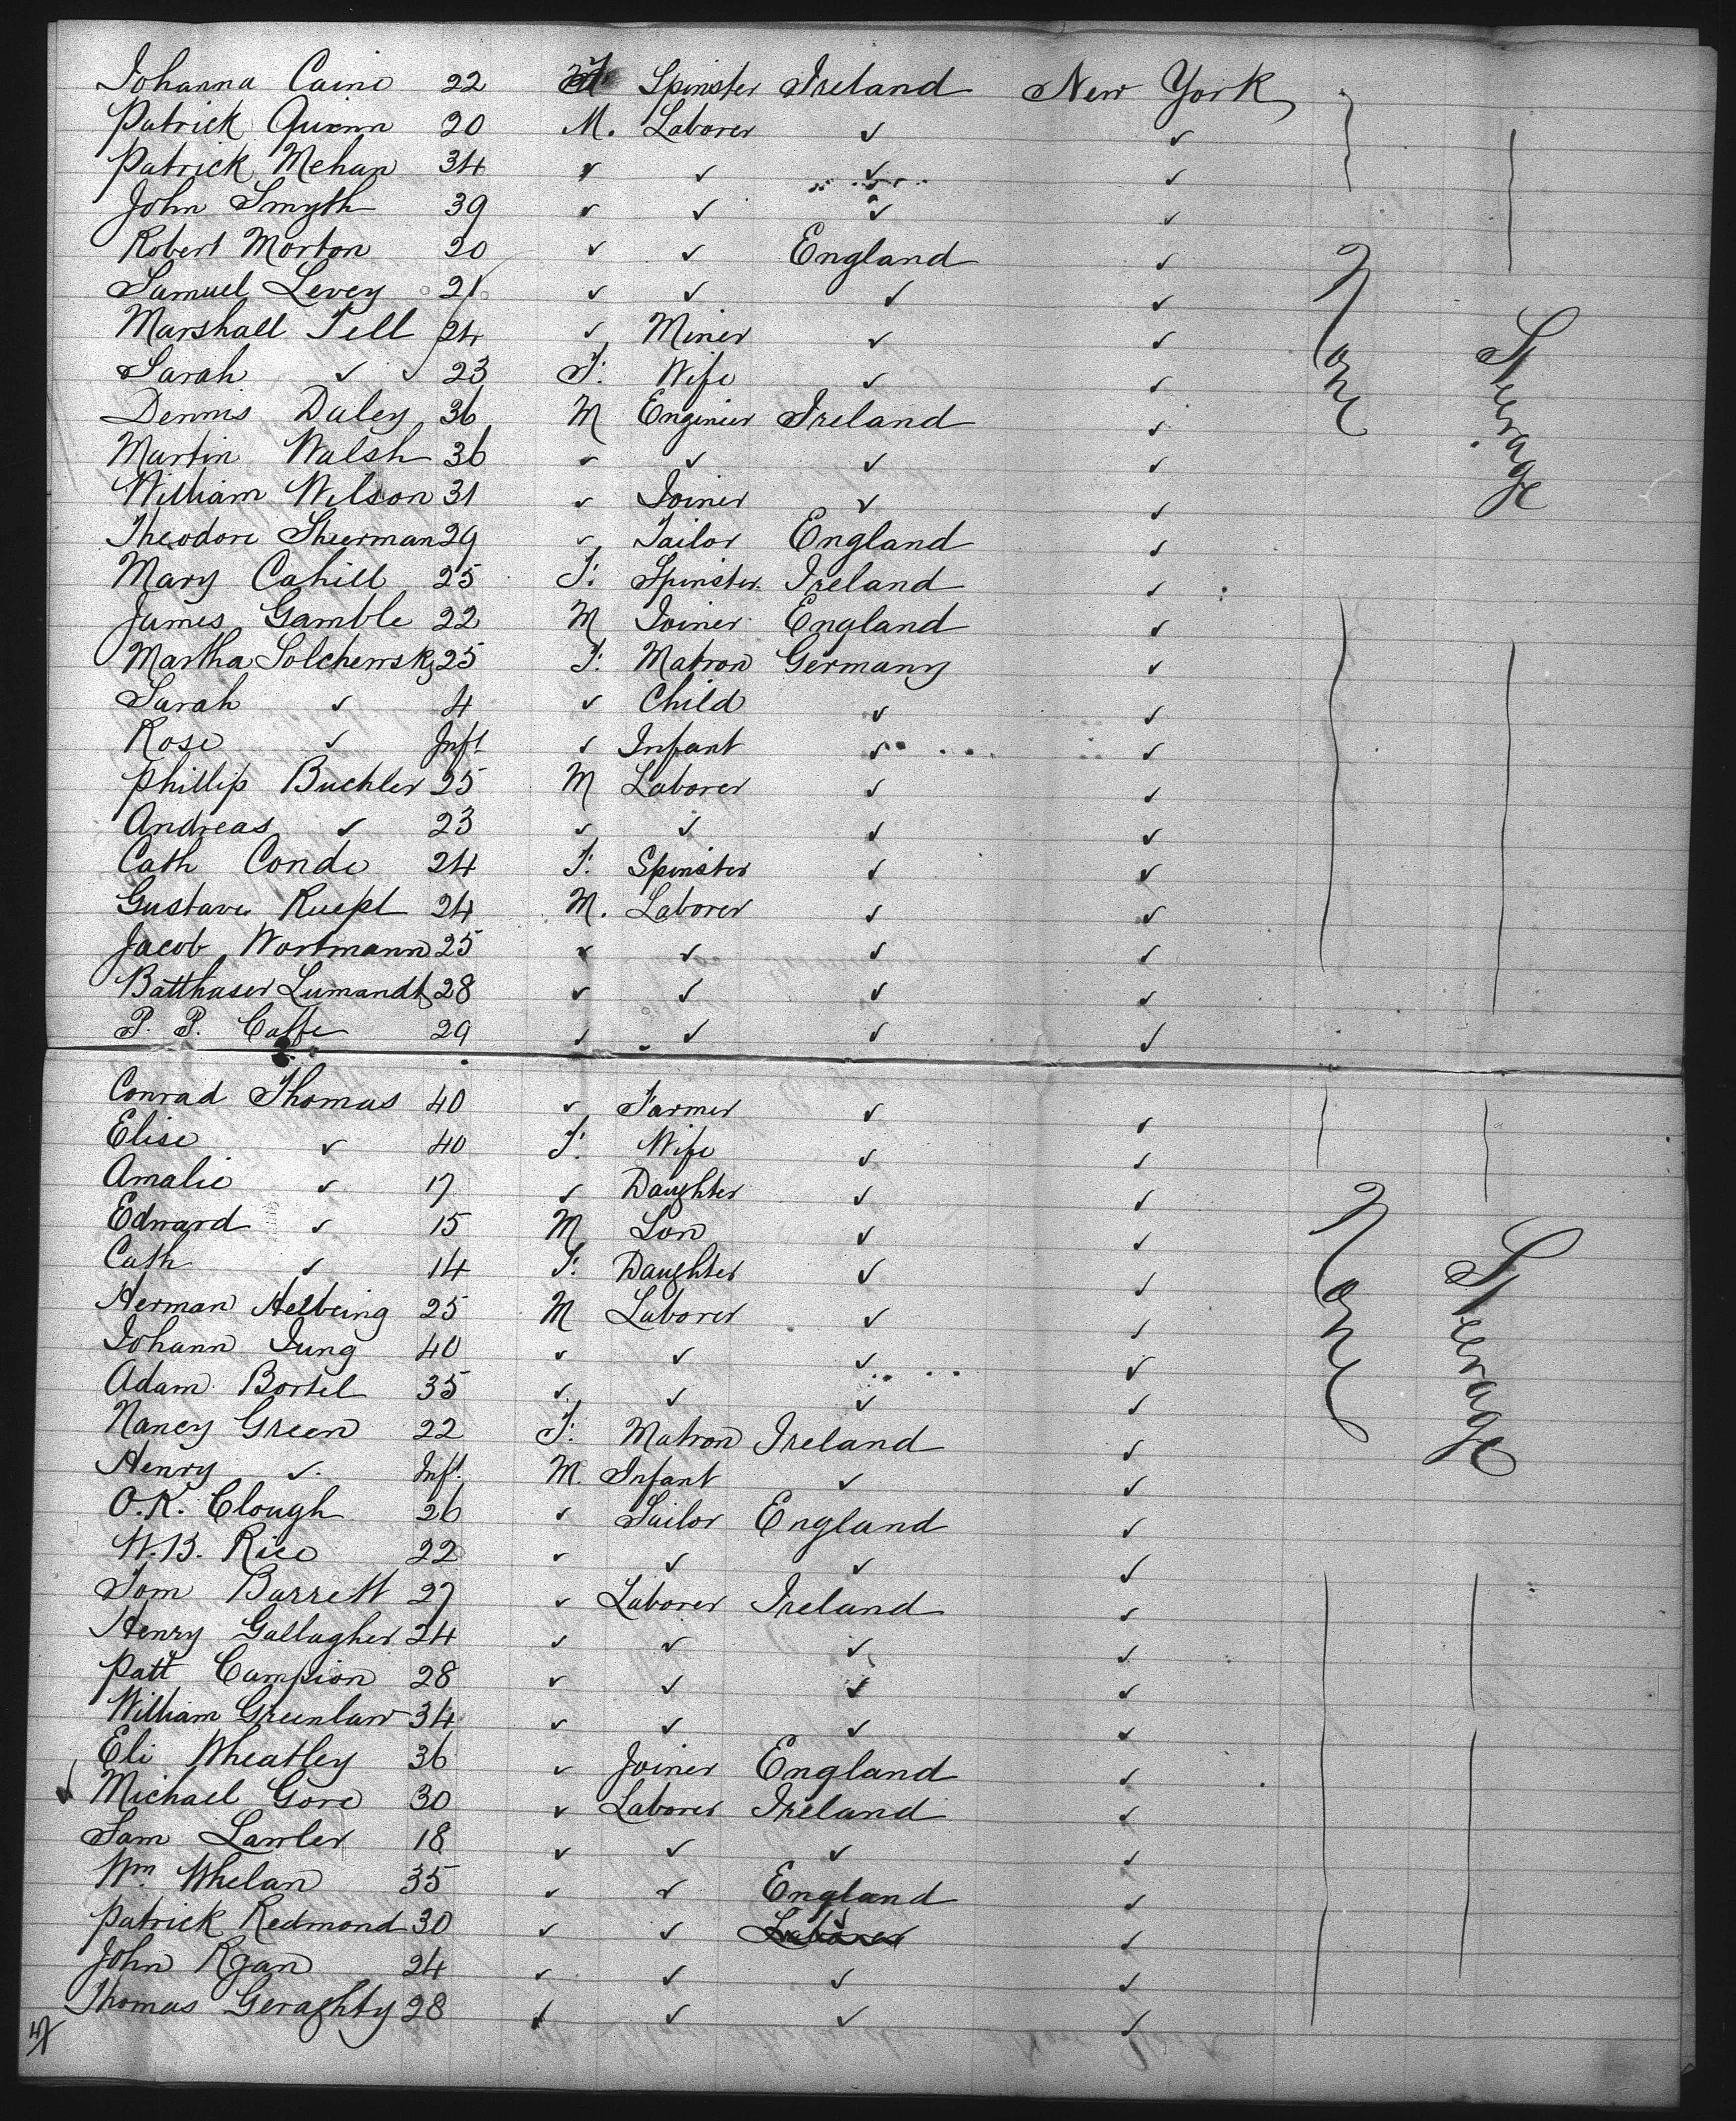 Johanna Caine 22 F. Spinster Ireland New York
Patrick Quinn 20 M. Laborer ✓ ✓
Patrick Mehan 34 ✓ ✓ ✓ ✓
John Smyth 39 ✓ ✓ ✓ ✓
Robert Morton 20 ✓ ✓ England ✓
Samuel Levey 21 ✓ ✓ ✓ ✓
Marshall Tell 24 ✓ Miner ✓ ✓
Sarah ✓ 23 F. Wife ✓ ✓
Dennis Daley 36 M Engineer Ireland ✓
Martin Walsh 36 ✓ ✓ ✓ ✓
William Wilson 31 ✓ Joiner ✓ ✓
Theodore Sherman 29 ✓ Tailor England ✓
Mary Cahill 25 F. Spinster Ireland ✓
James Gamble 22 M Joiner England ✓
Martha Solchewsky 25 F. Matron Germany ✓
Sarah ✓ 4 ✓ Child ✓ ✓
Rose ✓ Inft. ✓ Infant ✓ ✓
Phillip Buchler 25 M Laborer ✓ ✓
Andreas ✓ 23 ✓ ✓ ✓ ✓
Cath Conde 24 F. Spinster ✓ ✓
Gustave Ruepl 24 M. Laborer ✓ ✓
Jacob Wortmann 25 ✓ ✓ ✓ ✓
Batthaser Lumandt 28 ✓ ✓ ✓ ✓
P. P. Caffe 29 ✓ ✓ ✓ ✓
None
Steerage
Conrad Thomas 40 ✓ Farmer ✓ ✓
Elise ✓ 40 F. Wife ✓ ✓
Amalie ✓ 17 ✓ Daughter ✓ ✓
Edward ✓ 15 M Son ✓ ✓
Cath ✓ 14 F. Daughter ✓ ✓
Herman Helbeing 25 M Laborer ✓ ✓
Johann Jung 40 ✓ ✓ ✓ ✓
Adam Bortel 35 ✓ ✓ ✓ ✓
Nancy Green 22 F. Matron Ireland ✓
Henry ✓ Inft. M. Infant ✓ ✓
O.K. Clough 26 ✓ Sailor England ✓
W.B. Rice 22 ✓ ✓ ✓ ✓
Tom Barrett 27 ✓ Laborer Ireland ✓
Henry Gallagher 24 ✓ ✓ ✓ ✓
Patt Campion 28 ✓ ✓ ✓ ✓
William Greenlaw 34 ✓ ✓ ✓ ✓
Eli Wheatley 36 ✓ Joiner England ✓
Michael Gore 30 ✓ Laborer Ireland ✓
Sam Lawler 18 ✓ ✓ ✓ ✓
Wm. Whelan 35 ✓ ✓ England ✓
Patrick Redmond 30 ✓ ✓ Laborer ✓ ✓
John Ryan 24 ✓ ✓ ✓ ✓
Thomas Geraghty 28 ✓ ✓ ✓ ✓
None
Steerage
47